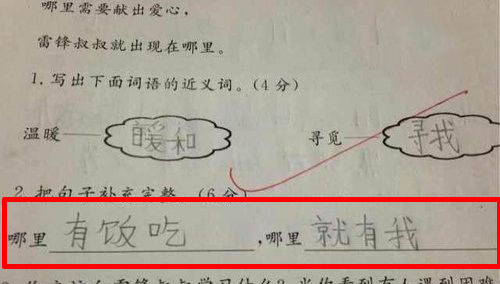 哪里需要献出爱心，
雷锋叔叔就出现在哪里。
1.写出下面词语的近义词。(4分)
温暖 暖和 寻觅 寻找
2.把句子补充完整。(6分)
哪里有饭吃，哪里就有我